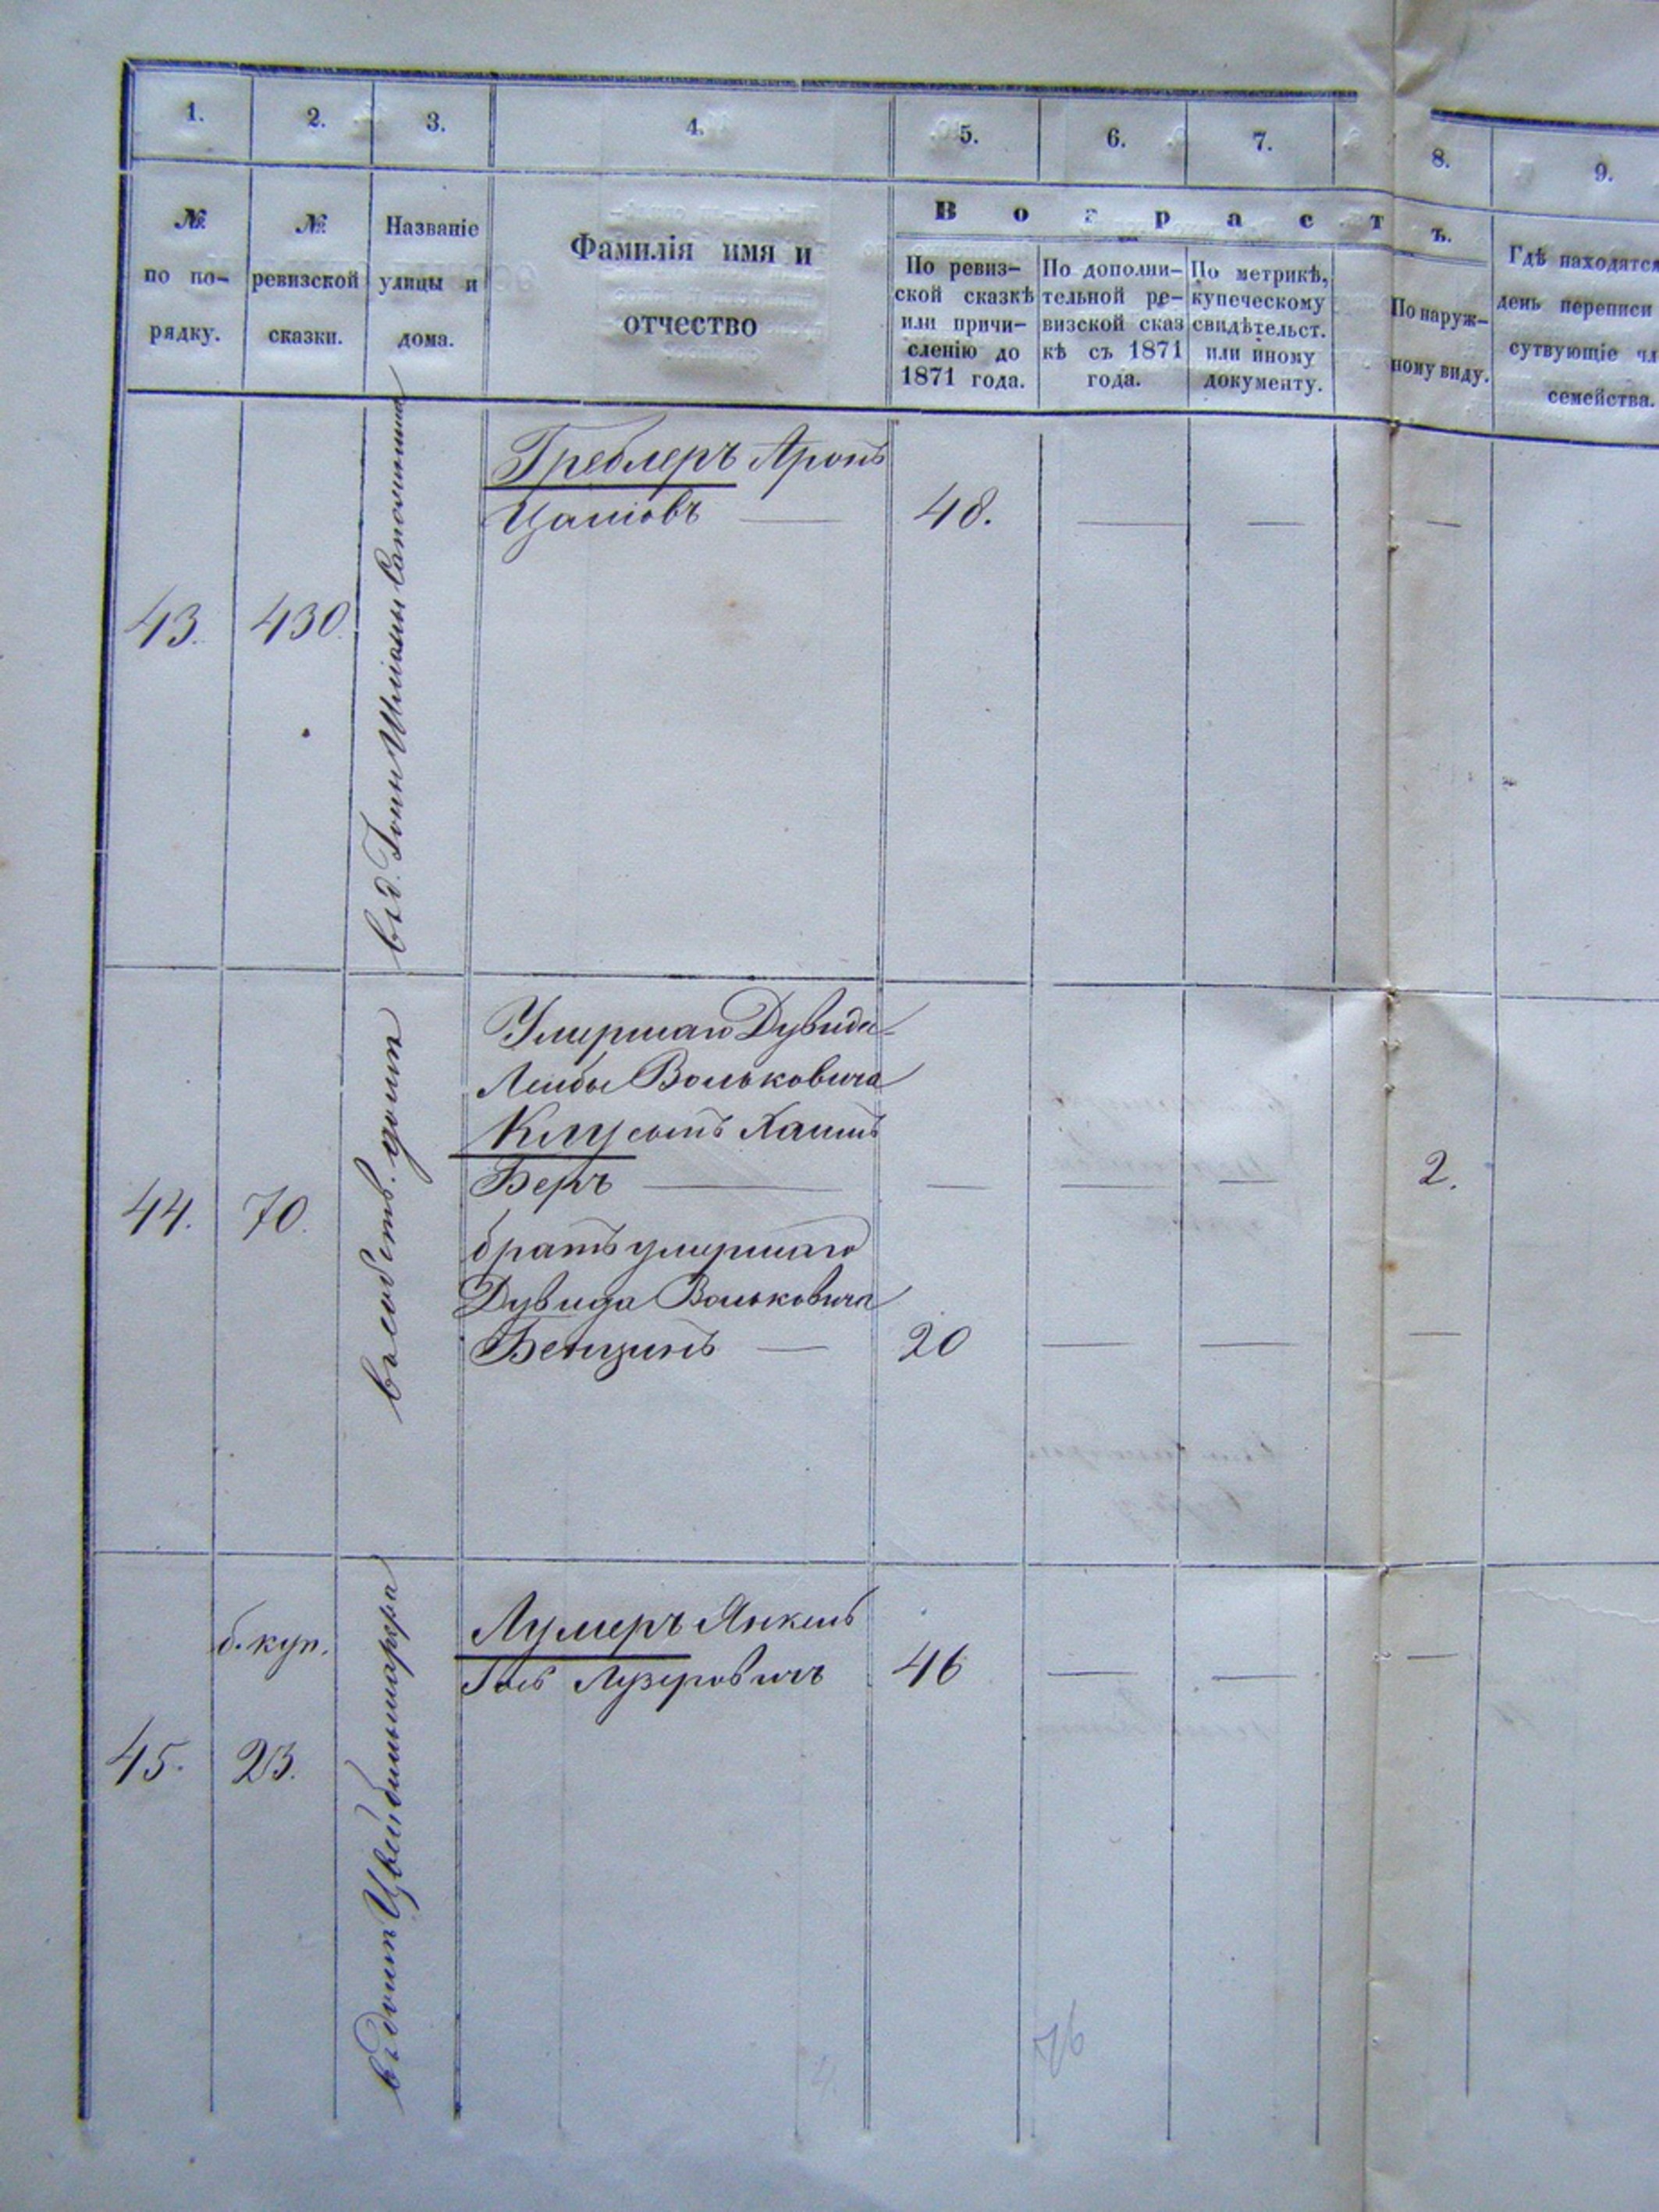 1. 2. 3. 4. 5. 6. 7. 8. 9.
№ по по-
рядку.
№
ревизской
сказки.
Названіе
улицы и
дома.
Фамилія имя и
отчество
В о з р а с т ъ.
По ревиз-
ской сказкѣ
или причи-
сленію до
1871 года.
По дополни-
тельной ре-
визской сказ
кѣ съ 1871
года.
По метрикѣ,
купеческому
свидѣтельст.
или иному
документу.
По наруж-
ному виду.
Гдѣ находятся
день переписи
сутвующіе чл
семейства.
43. 430.
въ д.
Греблеръ Аронъ
48.
44. 70.
въ собств. домѣ
Умершаго Дувида-
Лейбы Вольковича
Клуг сынъ Хаимъ
Беръ — — — — 2.
братъ умершаго
Дувида Вольковича
Бенцинъ — 20 — — —
45.
б. куп.
23.
въ домѣ
Лумеръ Янкель
Голь Лузеровичъ 46 — — —
76